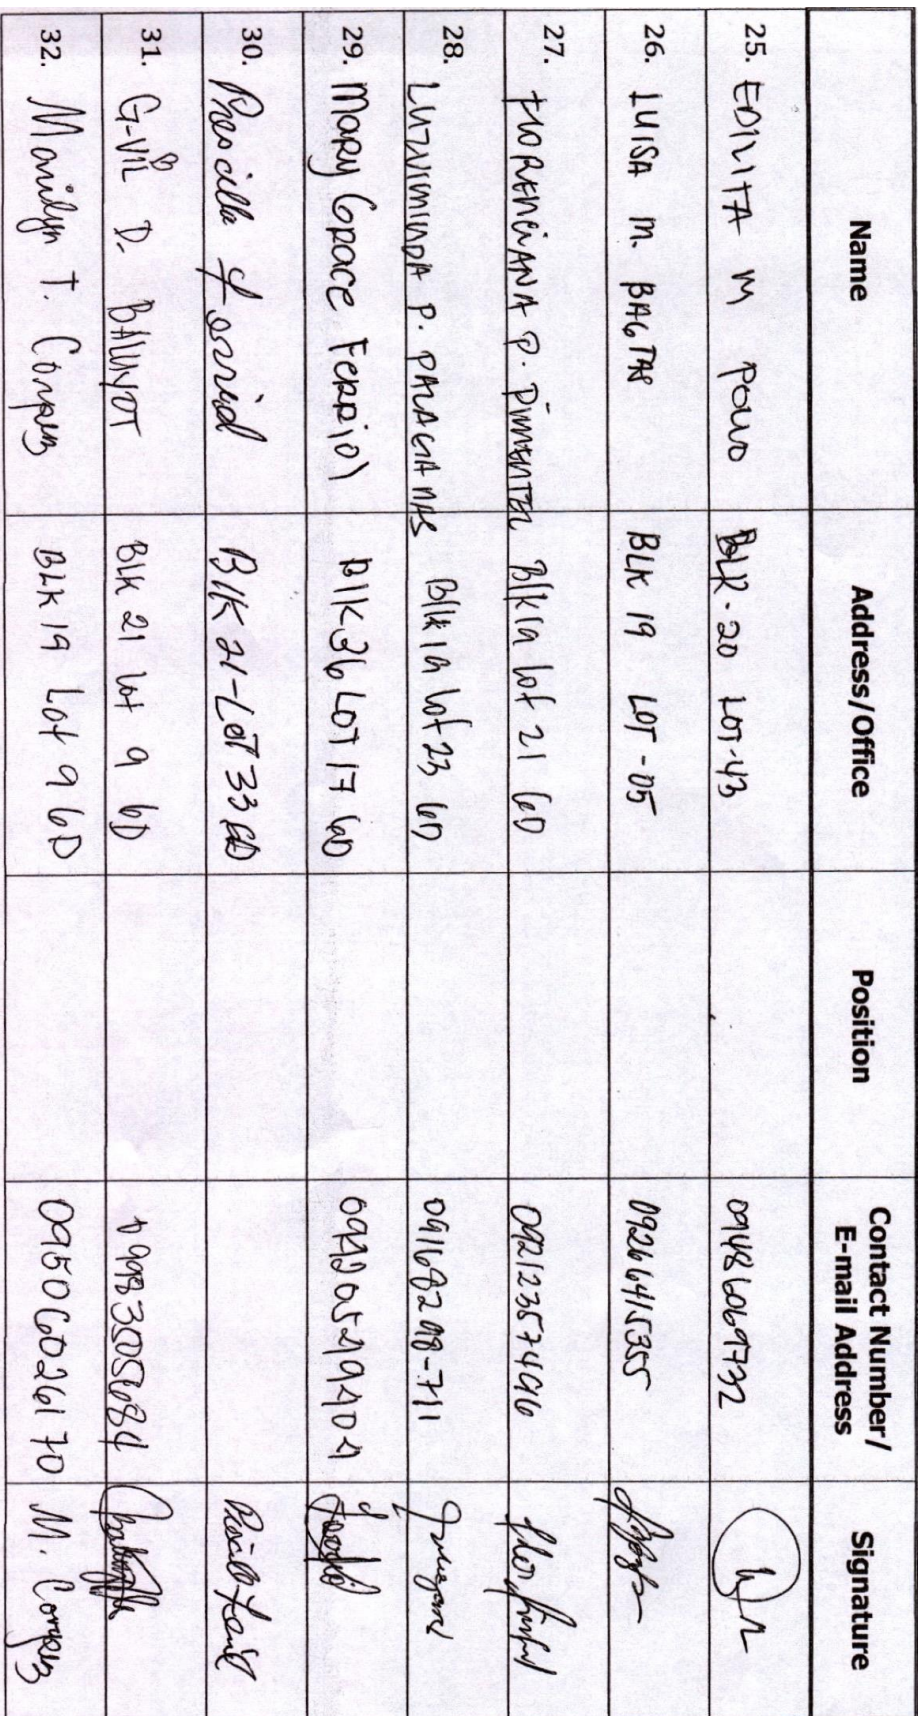 Name Address/Office Position Contact Number/ E-mail Address Signature
25. EDILITA M POLLO BLK-20 LOT-43 09486069732
26. LUISA M. BAGTAS BLK 19 LOT-05 0926415355
27. FLORENCIANA P. PIMENTEL Blk 19 lot 21 GD
28. LUZVIMINDA P. PALAGANAS Blk 19 lot 23 GD
29. MARY GRACE FERRIOL BlK36 LOT 17 GD
30. Priscilla Ferriol BlK 21-LOT 33 GD
31. G-VIL D. BALUYOT BLK 21 lot 9 GD 09983505684
32. Maridyn T. BLK 19 Lot 9 GD 09506026170 M.